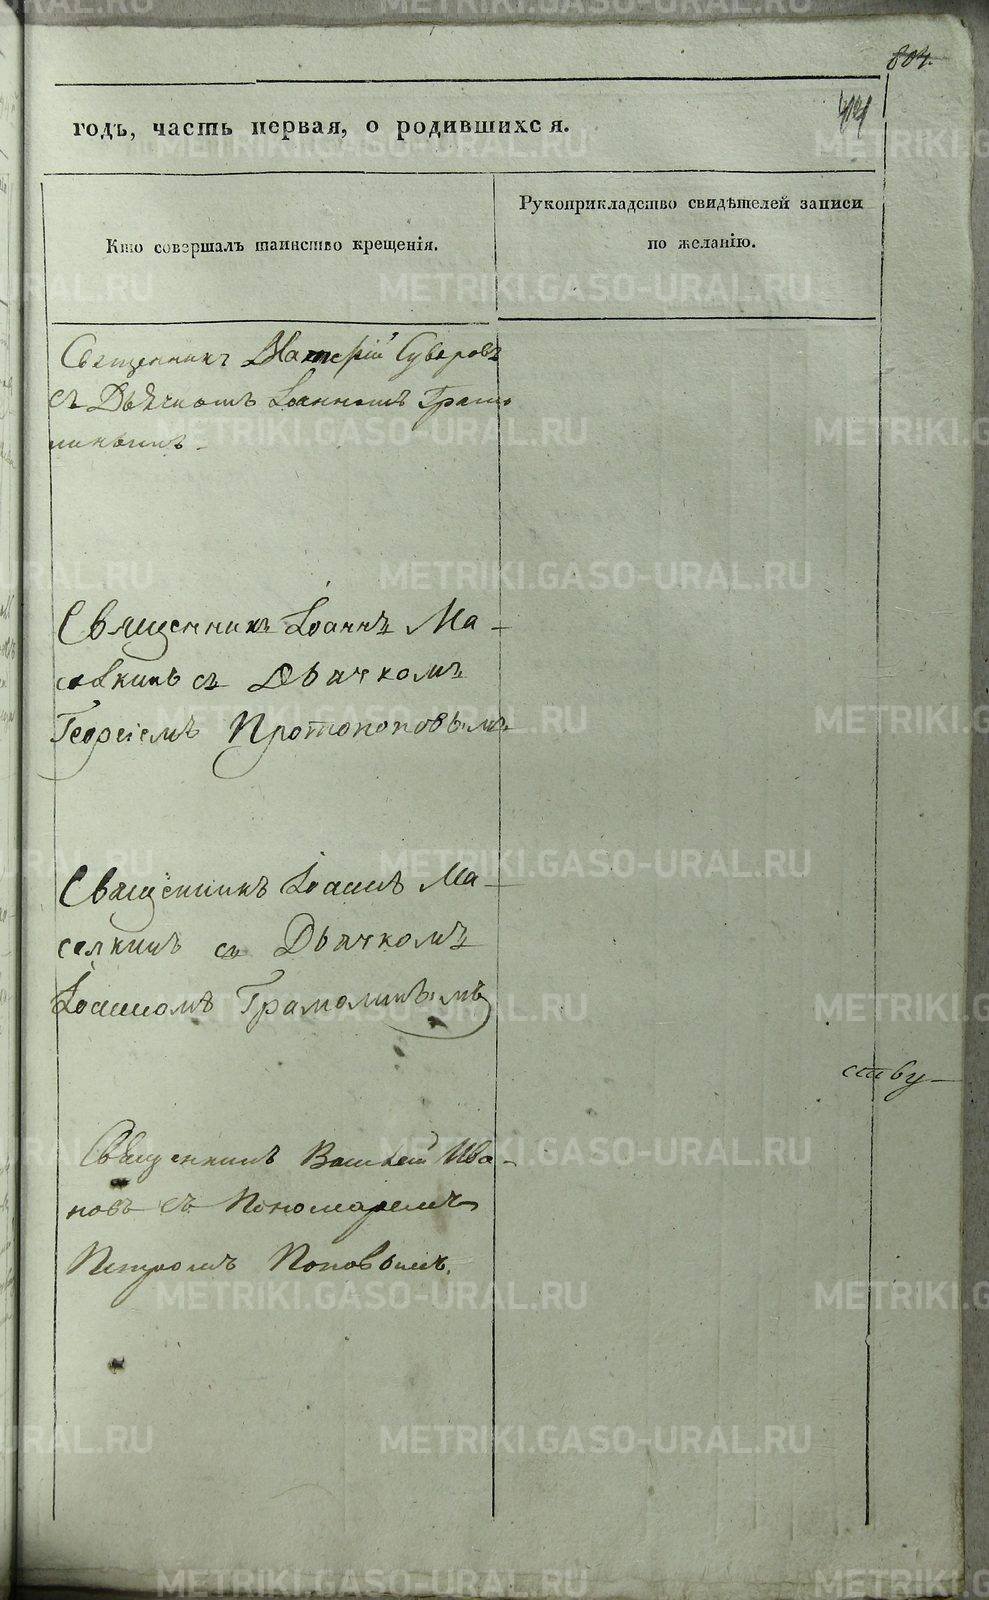 804.
годъ, часть первая, о родившихся.
Кто совершалъ таинство крещенія.
Рукоприкладство свидѣтелей записи
по желанію.
Священникъ Суворовъ
съ Дьячкомъ Іоанномъ Грамо
линымъ
Священникъ Іоаннъ Ма-
селкинъ съ Дьячкомъ
Георгіемъ Протопоповымъ
Священникъ Іоаннъ Ма-
селкинъ съ Дьячкомъ
Іоанномъ Грамолинымъ
ству
Священникъ Василей Ива-
новъ съ Пономаремъ
Петромъ Поповымъ.
METRIKI.GASO-URAL.RU